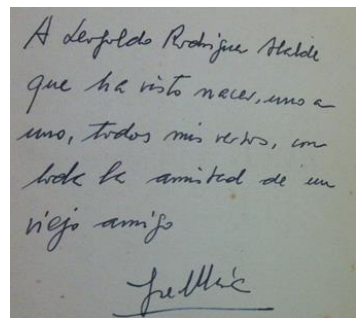 A Leopoldo Rodríguez Alcalde
que ha visto nacer, uno a
uno, todos mis versos, con
toda la amistad de un
viejo amigo